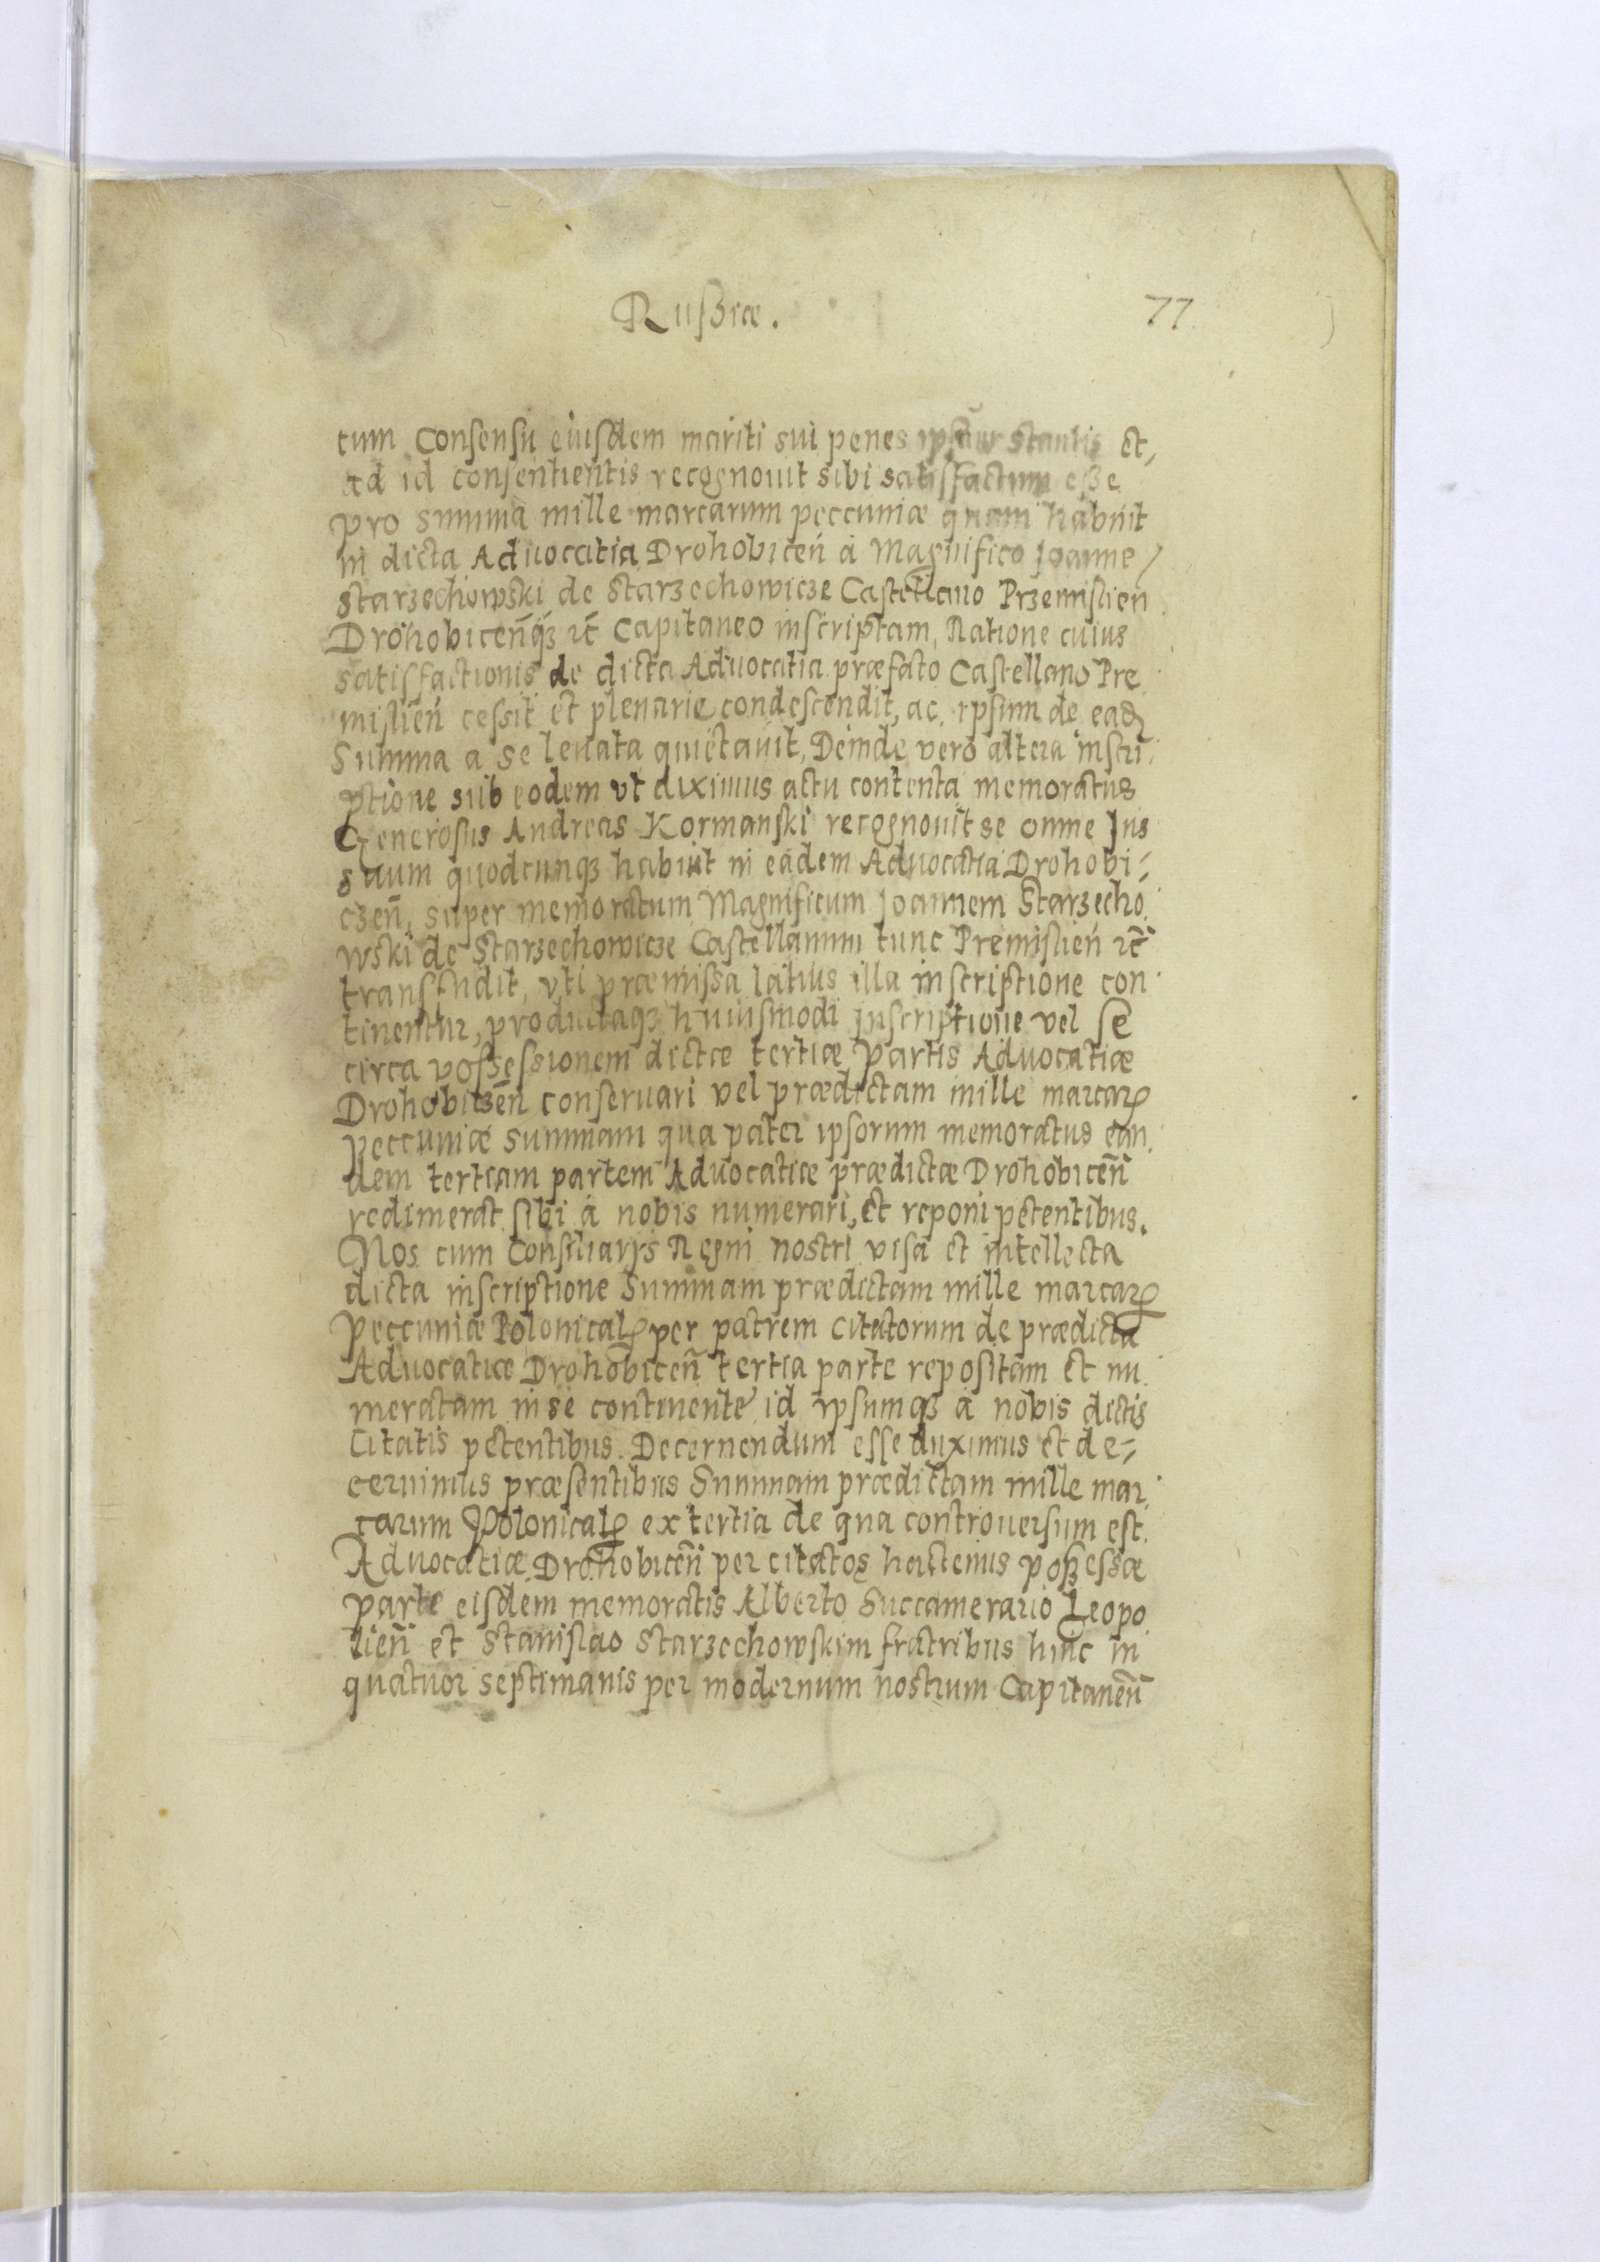 Rußiæ.
77
cum Consensu eiusdem mariti sui penes ipsam stantis et,
ad id consentientis recognouit sibi satisfactum eße
pro summa mille marcarum peccuniæ quam habuit
in dicta Aduocatia Drohobiceń à Magnifico Joanne
Starzechowski de Starzechowicze Castellano Przemislień
Drohobiceńq₃ rc̃ Capitaneo inscriptam, Ratione cuius
satisfactionis de dicta Aduocatia præfato Castellano Pre
mislień cessit et plenarie condescendit, ac ipsum de eadȩ
Summa a se leuata quietauit, Deinde vero altera inscri
ptione sub eodem vt diximus actu contenta memoratus
Generosus Andreas Kormanski recognouit se omne Jus
suum quodcunq₃ habuit in eadem Aduocatia Drohobi-
czeñ, super memoratum Magnificum Joannem Starzecho
wski de Starzechowicze Castellanum tunc Premislień rc̃
transfudit, vti præmißa latius illa inscriptione con
tinentur, productaq₃ huiusmodi inscriptione vel se
circa poßessionem dictæ tertiæ partis Aduocatiæ
Drohobiczeñ conseruari vel prædictam mille marcarꝝ
peccuniæ summam qua pater ipsorum memoratus ean
dem tertiam partem Aduocatiæ prædictæ Drohobiceñ
redimerat sibi à nobis numerari, et reponi petentibus.
Nos cum Consiliarijs Regni nostri visa et intellecta
dicta inscriptione Summam prædictam mille marcarꝝ
Peccuniæ Polonicalꝝ per patrem citatorum de prædicta
Aduocatiæ Drohobiceñ tertia parte repositam et nu
meratam in se continente id ipsumq₃ a nobis dictis
Citatis petentibus. Decernendum esse duximus et de-
cernimus præsentibus Summam prædictam mille mar
carum Polonicalꝝ ex tertia de qua controuersum est
Aduocatiæ Drohobiceñ per citatos hactenus poßessæ
parte eisdem memoratis Alberto Succamerario Leopo
lieñ et Stanislao Starzechowskim fratribus hinc in
quatuor septimanis per modernum nostrum Capitaneñ